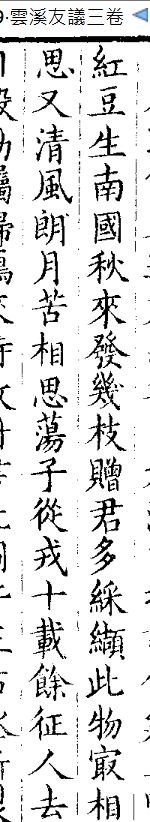 9.雲溪友議三卷
紅豆生南國秋來發幾枝贈君多綵纈此物㝡相
思又清風朗月苦相思蕩子從戎十載餘征人去